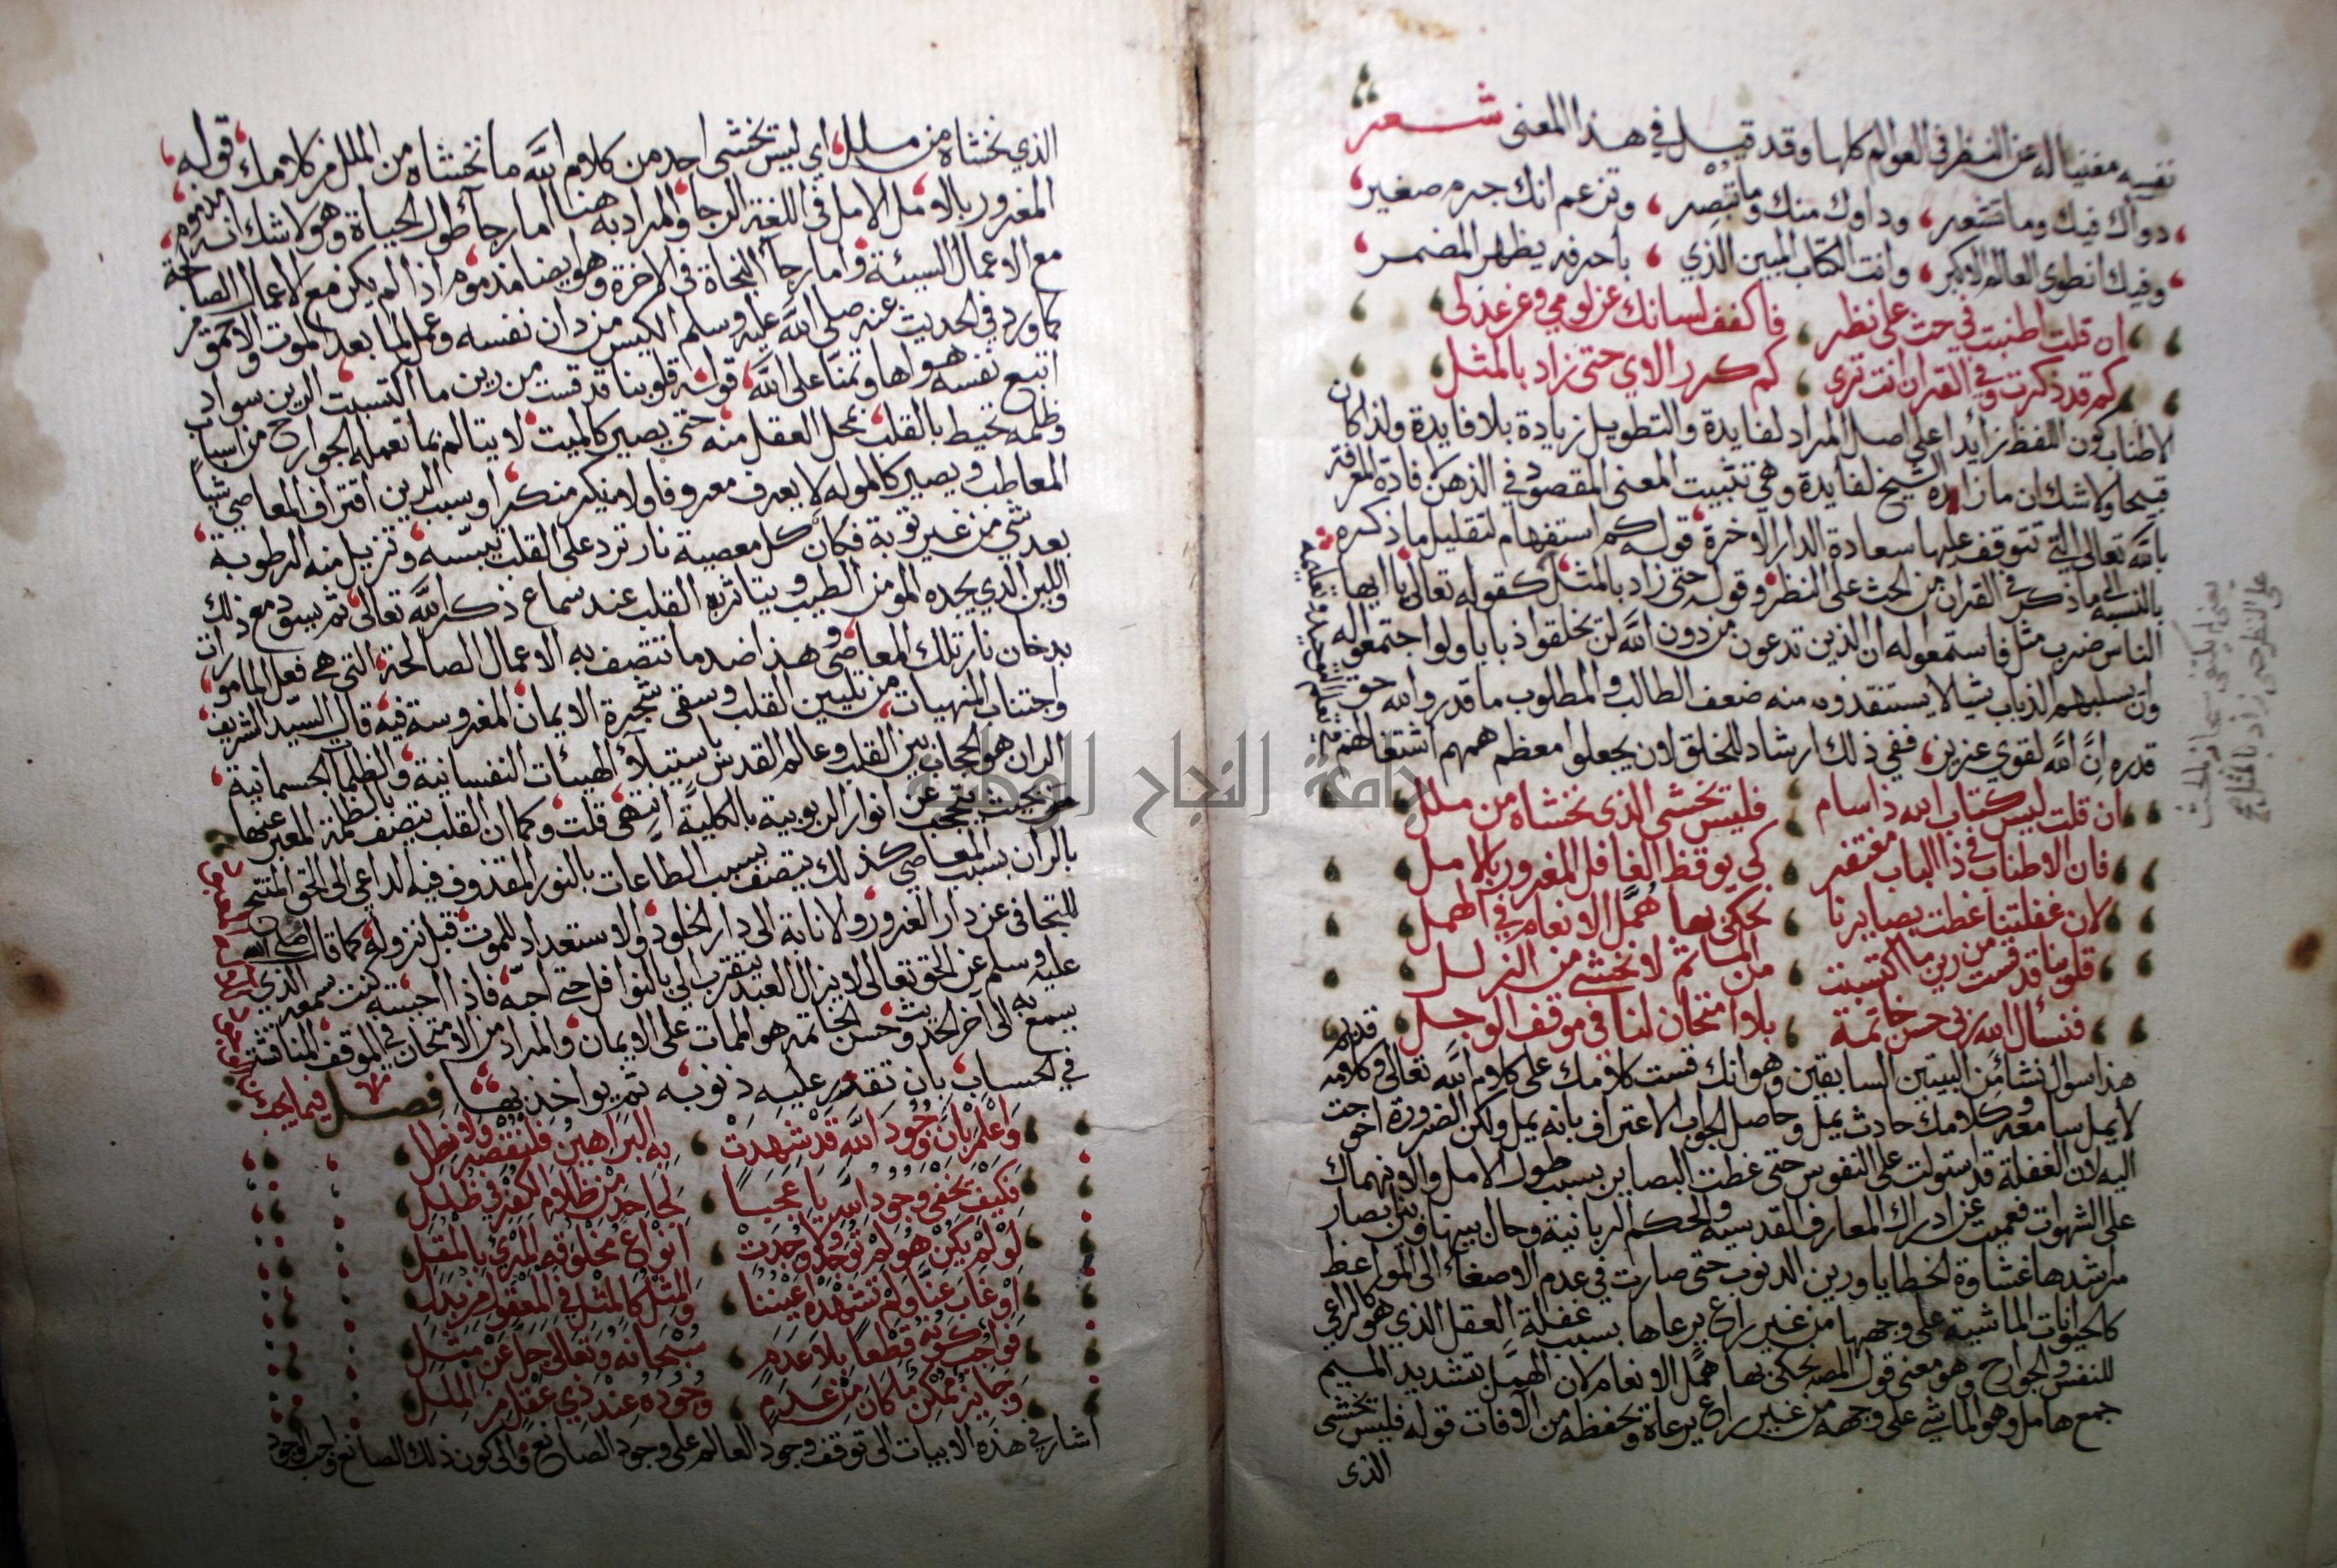 نفسه مغنيا له عن النظر في العوالم كلها وقد قيل في هذا المعنى شعر
دواك فيك وما تشعر وداوك منك وما تبصر وتزعم انك جرم صغير
وفيك انطوى العالم الاكبر وانت الكتاب المبين الذي باحرفه يظهر المضمر
ان قلت اطنبت في حث على نظر فاكفف لسانك عن لومي وعن عذلى
كم قد ذكرت وفي القران انت ترى كم كرر الاوي حتى زاد بالمثل
لاطناب كون اللفظ زايدا على اصل المراد لفايدة والتطويل زيادة بلا فايدة ولذا كان
قبيحا ولا شك ان ما زاده الشيخ لفايدة وهي تثبيت المعنى المقصود في الذهن فادة المعرفة
بالله تعالى التي تتوقف عليها سعادة الدار الاخرة قوله كم استفهام لتقليل ما ذكره
بالنسبة الى ما ذكر في القران من الحث على النظر وقوله حتى زاد بالمثل كقوله تعالى يا ايها
الناس ضرب مثل فاستمعوا له ان الذين تدعون من دون الله لن يخلقوا ذبابا ولو اجتمعوا له
وان يسلبهم الذباب شيا لا يستنقذوه منه ضعف الطالب والمطلوب ما قدروا الله حق
قدره ان الله لقوي عزيز ففي ذلك ارشاد للخلق لان يجعلوا معظم هممهم اشتغالهم
ان قلت ليس كتاب الله ذا سام فليس تخشى الذي تخشاه من ملل
فان الاطناب في ذا الباب مغتفر كي يوقظ الغافل المغرور بالامل
لان غفلتنا غطت بصايرنا نحكي بها همل الانعام في الهمل
قلوبنا قد قست من رين ما اكتسبت من الماثم لا نخشى من الزلل
فنسأل الله ربي حسن خاتمة بلا امتحان لنا في موقف الوجل قوله
هذا سوال نشا من البيتين السابقين وهو انك قست كلامك على كلام الله تعالى وكلامه
لا يمل سامعه وكلامك حادث يمل وحاصل الجواب الاعتراف بانه يمل ولكن الضرورة احوجت
اليه لان الغفلة قد استولت على النفوس حتى غطت البصاير بسبب طول الامل والانهماك
على الشهوات فعميت عن ادراك المعارف القدسية والحكم الربانية وحال بينها وبين ابصار
مراشدها غشاوة الخطايا ورين الذنوب حتى صارت في عدم الاصغاء الى المواعظ
كالحيوانات الماشية على وجهها من غير راع يرعاها بسبب غفلة العقل الذي هو كالراعي
للنفس والجوارح وهو معنى قول المصـ نحكي بها همل الانعام لان الهمل بتشديد الميم
جمع هامل وهو الماشي على وجهه من غير راع يرعاه ويحفظه من الافات قوله فليس تخشى
الذي
الذي تخشاه من ملل اي ليس تخشى احد من كلام الله ما تخشاه من الملل من كلامك قوله
المغرور بالامل الامل في اللغة الرجا والمراد به هنا اما رجا طول الحياة وهو لا شك انه مذموم
مع الاعمال السيئة واما رجا النجاة في الاخرة وهو ايضا مذموم اذا لم يكن مع الاعمال الصالحة
كما ورد في الحديث عنه صلى الله عليه وسلم الكيس من دان نفسه وعمل لما بعد الموت والاحمق من
اتبع نفسه هواها وتمنا على الله قوله قلوبنا قد قست من رين ما اكتسبت الرين سواد
وظلمه تحيط بالقلب محل العقل منه حتى يصير كالميت لا يتالم بما تعمله الجوارح من اسباب
المعاطب ويصير كالموله لا يعرف معروفا ولا منكر منكرا وسبب الرين اقتراف المعاصي شيا
بعد شي من غير توبة فكان كل معصية نار ترد على القلب تيبسه وتزيل منه الرطوبة
واللين الذي يجده المومن الطيب ويتاثر به القلب عند سماع ذكر الله تعالى ثم يسود مع ذلك
بدخان نار تلك المعاصي وهذا ضد ما تتصف به الاعمال الصالحة التي هي فعل المامورات
واجتناب المنهيات من تليين القلب وسقي شجرة الايمان المغروسة فيه قال السيد الشريف
الران هو الحجاب بين القلب وعالم القدس باستيلاء الهيئات النفسانية والظلما الجسمانية
بحيث يحتجب عن انوار الربوبية بالكلية انتهى قلت وكما ان القلب يتصف بالظلمة المعبر عنها
بالران بسبب المعاصي كذلك يتصف بسبب الطاعات بالنور المقذوف فيه الداعي الى الحق المنتج
للتجافي عن دار الغرور والانابة الى دار الخلود والاستعداد للموت قبل نزوله كما قال صلى الله
عليه وسلم عن الحق تعالى لا يزال العبد يتقرب الي بالنوافل حتى احبه فاذا احببته كنت سمعه الذي
يسمع به الى آخر الحديث وحسن الخاتمة هو الممات على الايمان والمراد من الامتحان في الموقف المناقشة
في الحساب بان تقدر عليه ذنوبه ثم يواخذ بها فصل فيما يجب
واعلم بان وجود الله قد شهدت به البراهين فلنقصر ولا نطل
فكيف يخفى وجود الله يا عجبا لجاحد من ظلام الكفر في ظلل
لو لم يكن هو لم توجد ولا وجدت انواع مخلوقه المرئ بالمقل
او غاب عنا ولم تشهده اعيننا والمثل كالمثل في المعقول من بدل
فواجب كونه قطعا بلا عدم سبحانه وتعالى جل عن مثل
وجايز ممكن ما كان من عدم وجوده عند ذي عقل من الملل
اشار في هذه الابيات الى توقف وجود العالم على وجود الصانع والى كون ذلك الصانع واجب الوجود
جامعة النجاح الوطنية